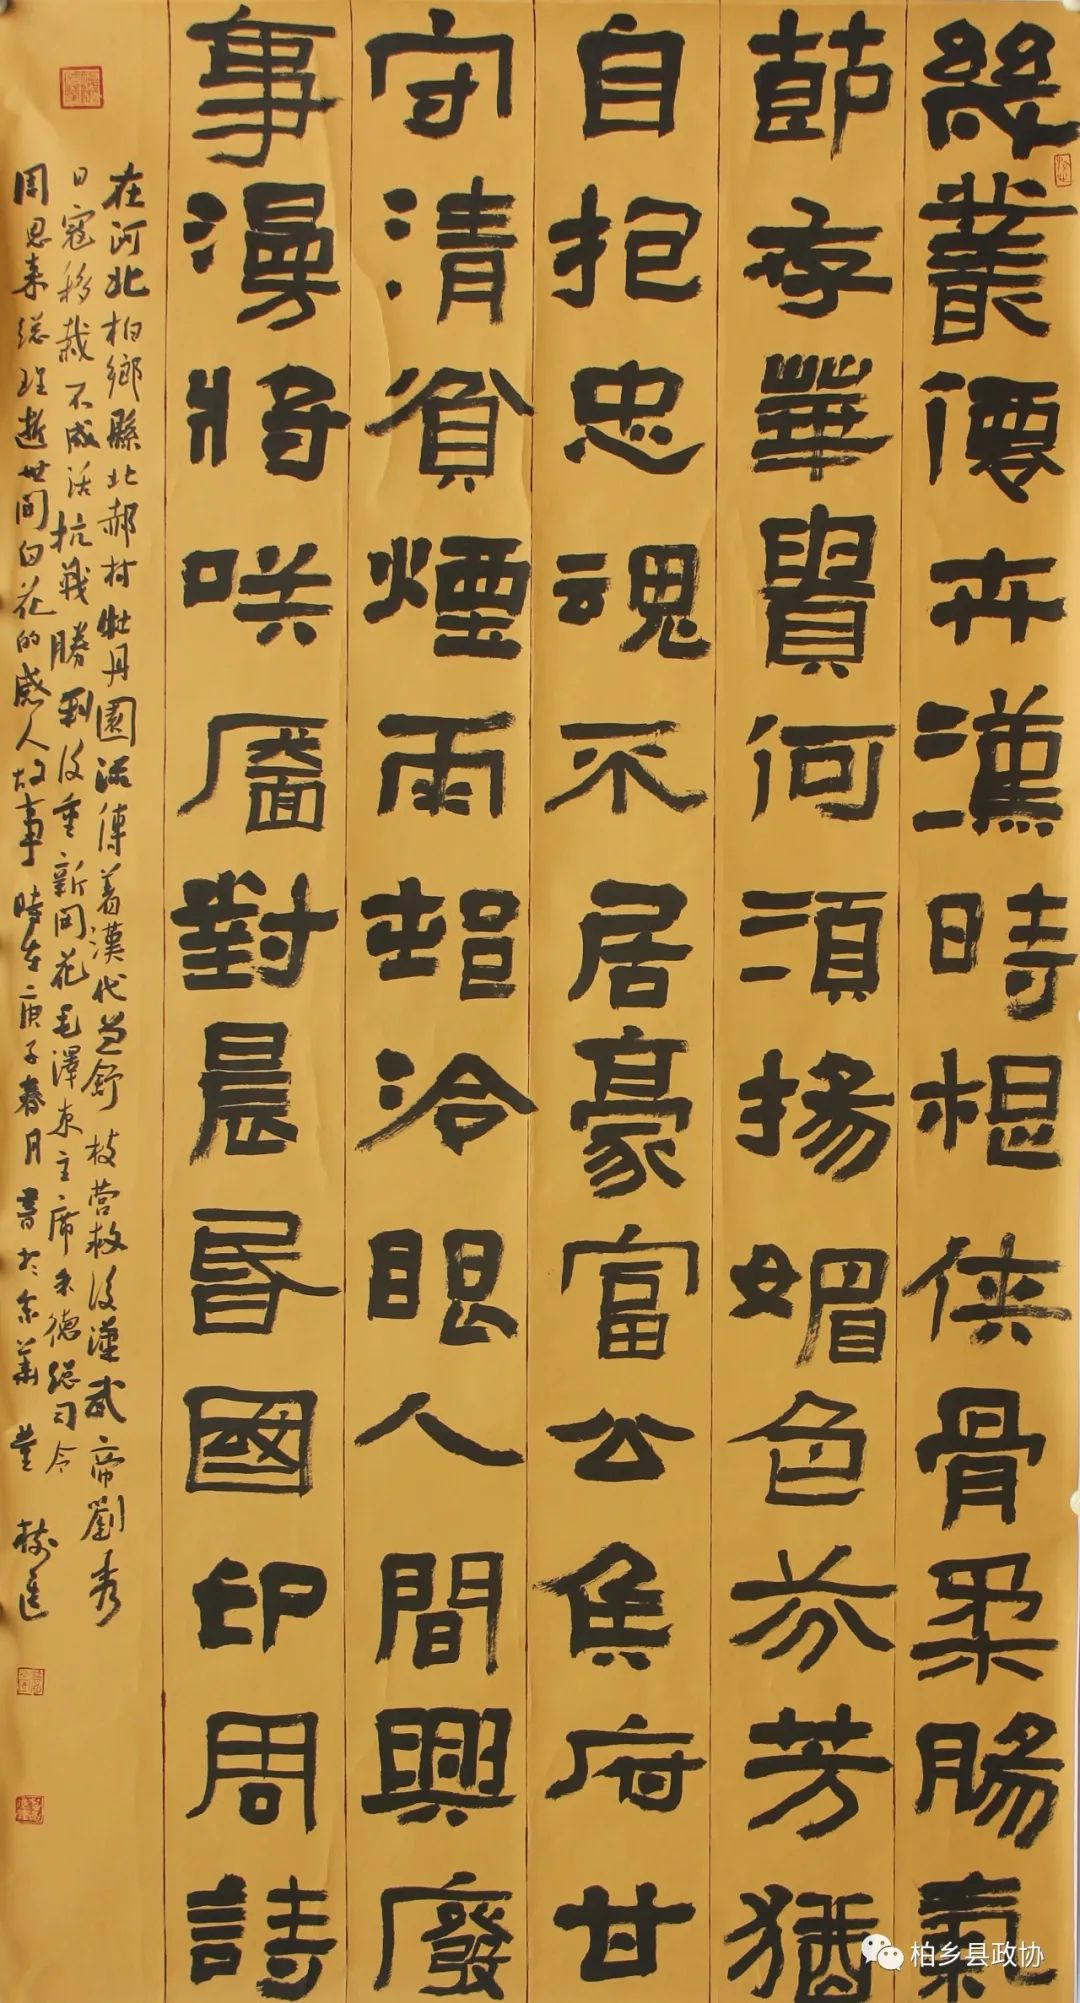 絲叢傳卉漢時想俠骨柔腸氣
節存華貴何須揚媚色芬芳猶
自抱忠魂不居豪富公侯府甘
守清貧煙雨趟洽眼人間興廢
事漫將哭靨對晨昏國印周詩
在河北柏鄉縣北郝村牡丹園流傳着漢代芭舒枝营救後漢武帝劉秀
日寇移栽不成活抗戰勝利後重新開花毛澤東主席朱德總司令
周恩来總理逝世開白花的感人故事時在庚子春月書於
柏乡县政协